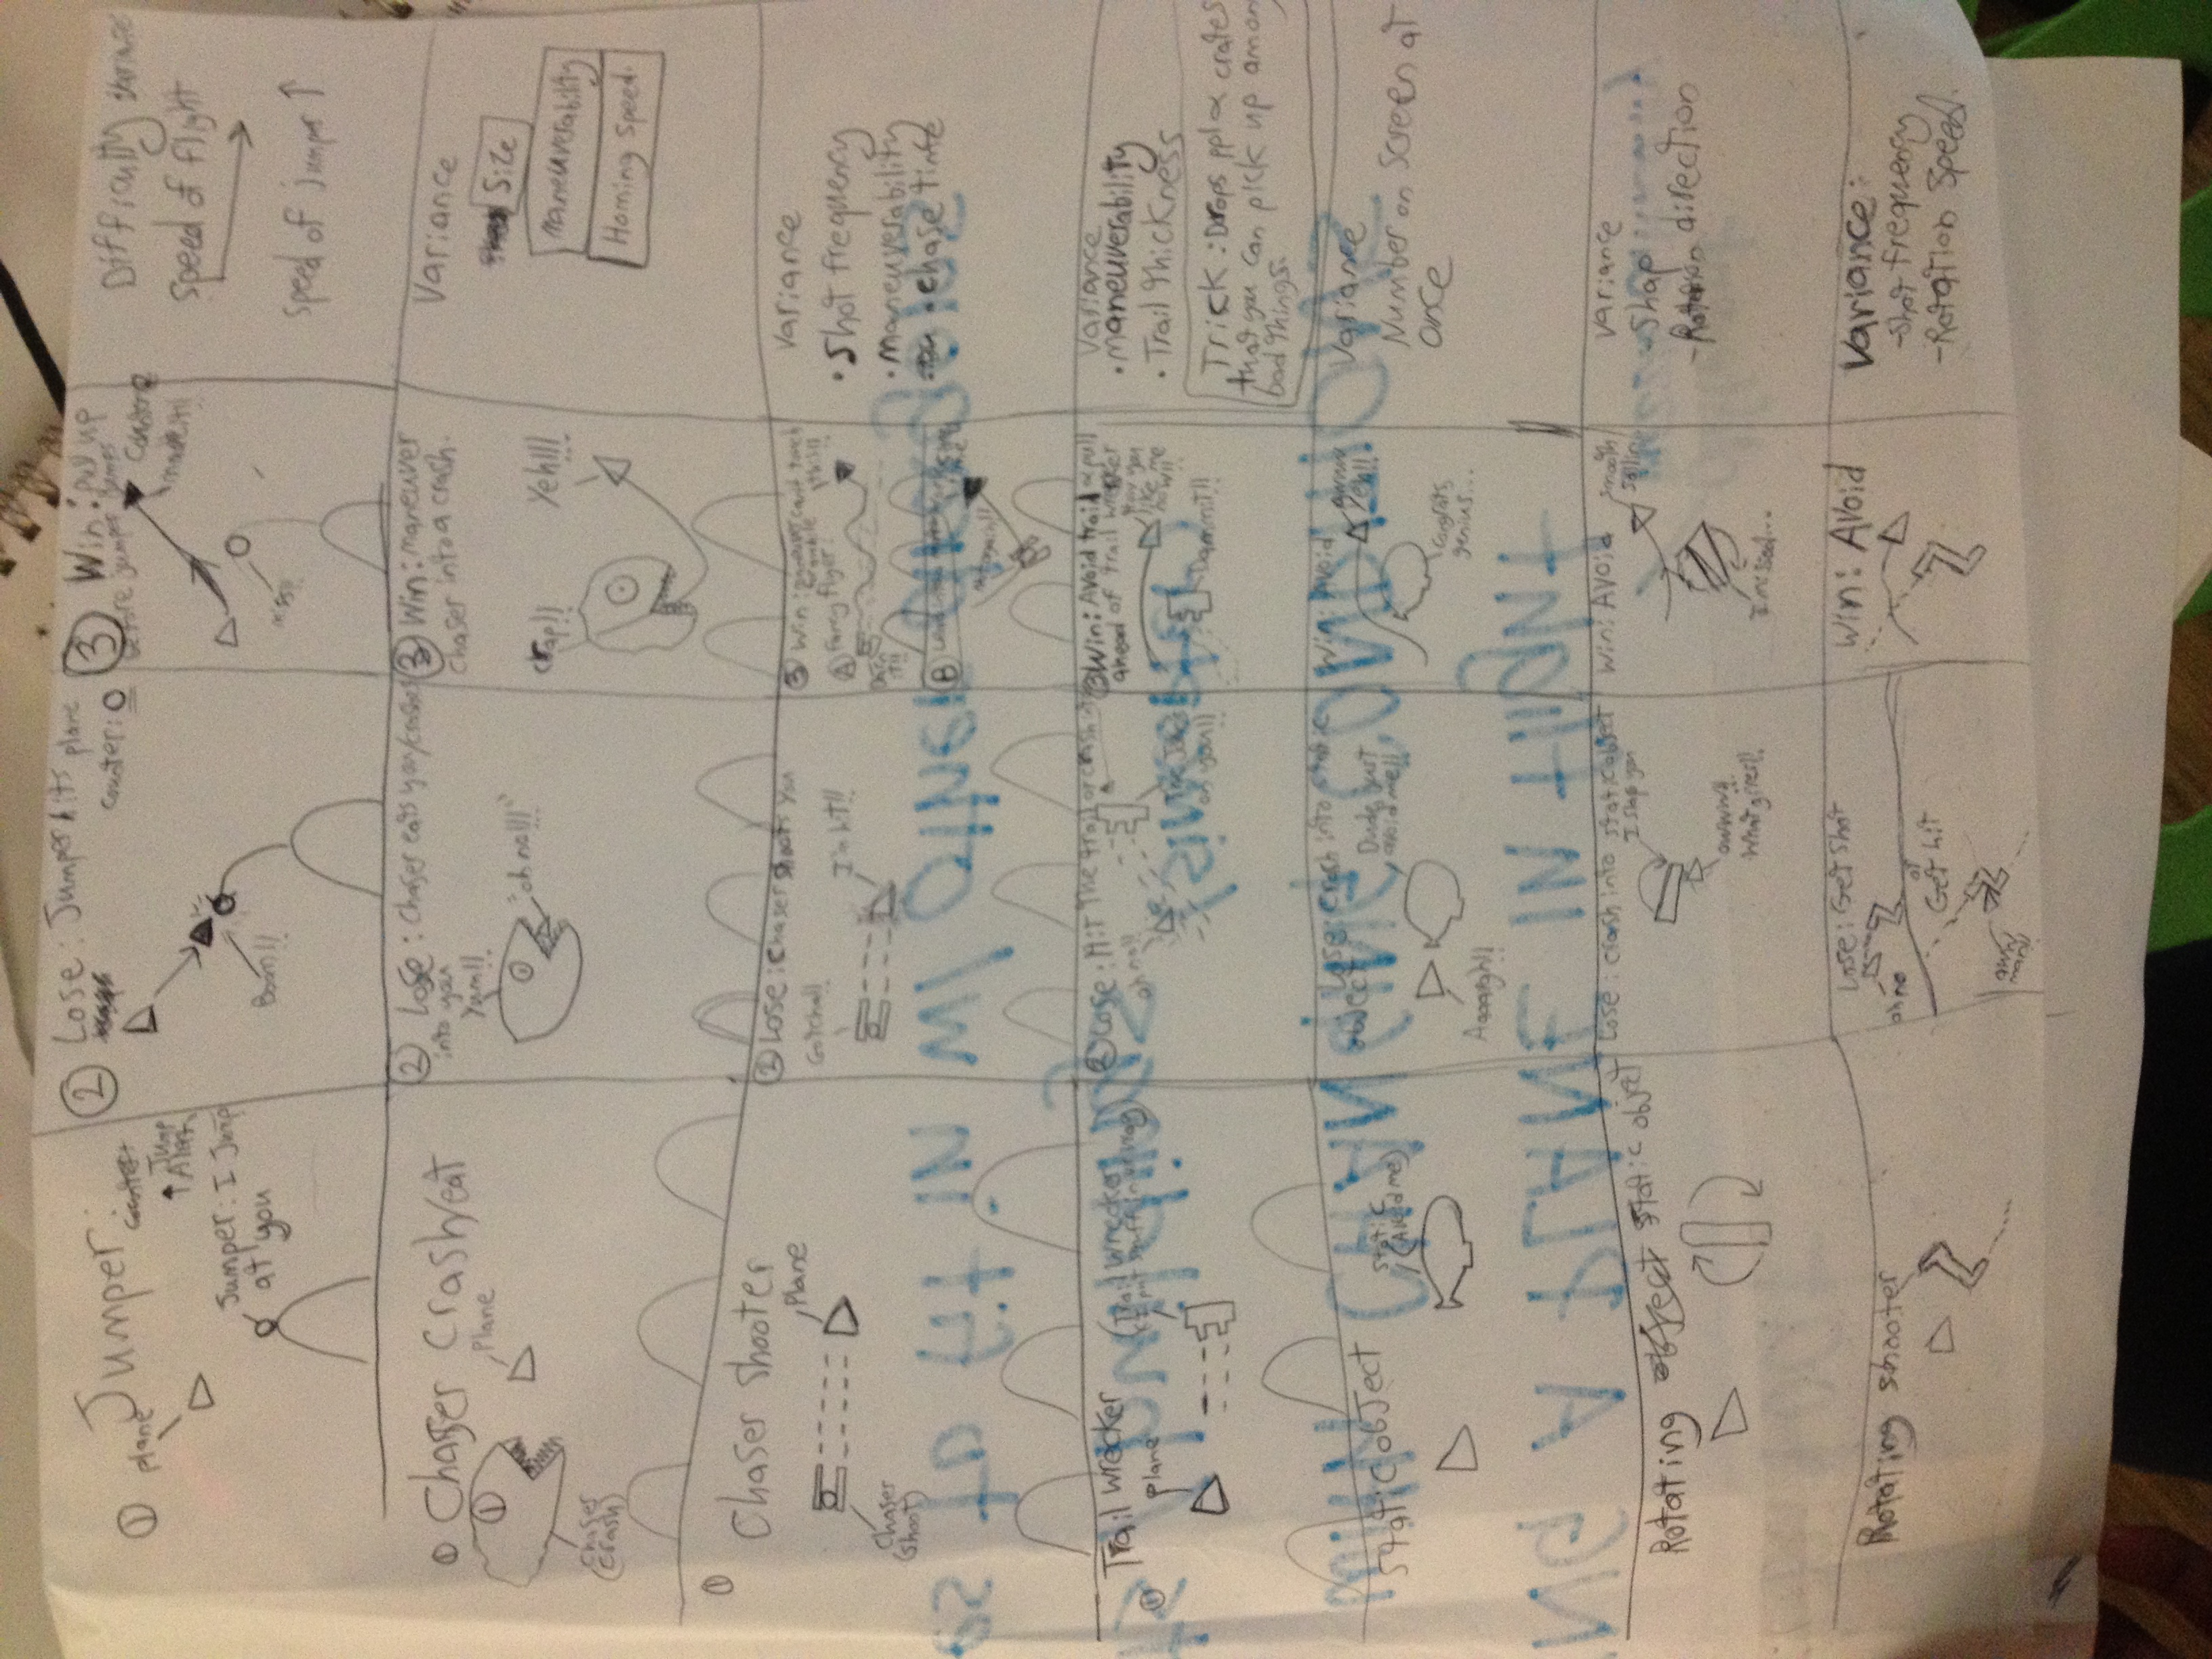 ① Jumper:
plane
Jump
Alert
Jumper: I Jump
at you
② Lose: Jumper hits plane
counter: O
Boom!!
③ Win: pull up
before jumper jumps
made it!!
miss!!
Difficulty variance
Speed of flight
Speed of jumper ↑
① Chaser Crash/eat
Plane
Chaser
(crash)
② Lose: Chaser eats you/crashes
into you
Yum!!
"oh no!!!"
③ Win: maneuver
chaser into a crash.
crap!!
Yeh!!!
Variance
Size
maneuverability
Homing Speed.
①
Chaser shooter
Plane
Chaser
(shoot)
② Lose: Chaser shoots you
Gotcha!!
I'm hit!!
③ Win: maneuver can't touch
this!!!
Ⓐ fancy flyer:
Darn
it!!
Ⓑ
Not again!!
Variance
• Shot frequency
• maneuverability
• chase time
① Trail wrecker
plane
(Trail wrecker
I put stuff in ur way)
② Lose: Hit The trail or crash into
oh no!!
The Joke's
on you!!
③ Win: Avoid trail or pull
ahead of trail wrecker
How you
like me
now!!
Dammit!!
Variance
• maneuverability
• Trail thickness
Trick: Drops ppl or crates
that you can pick up among
bad things.
Static object
static
(Avoid me)
Lose: crash into static
object
Dude, just
avoid me!!
Aaaargh!!
Win: Avoid
awww
Yeh!!
congrats,
genius...
Variance
Number on Screen at
once
Rotating static object
Lose: crash into static object
I slap you
owww!!
What gives!!
Win: Avoid
smooth
sailin
I missed...
Variance
- Shap
- Rotation direction
Rotating shooter
Lose: Get Shot
oh no
or
Get hit
aww
man!!
Win: Avoid
Variance:
- Shot frequency
- Rotation Speed.
es to fit in w/ other
building
WITH CHANGING CONDITIONS
NG A PLANE IN flight